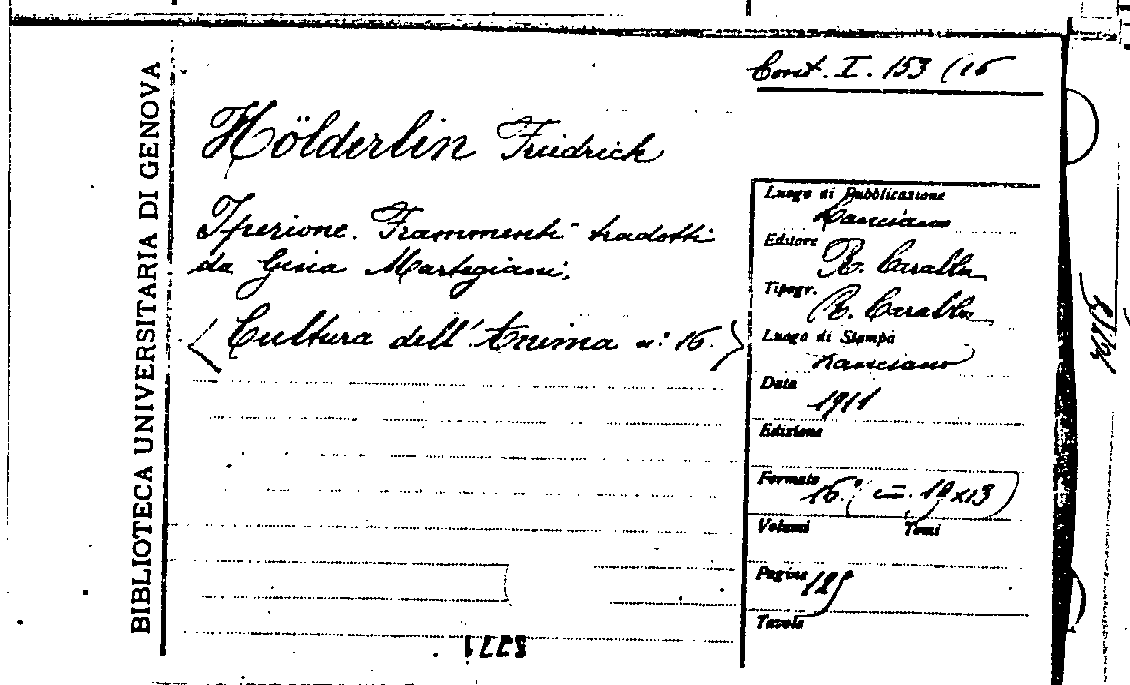 BIBLIOTECA UNIVERSITARIA DI GENOVA
Cont. I. 153 (16
Hölderlin Friedrich
Iperione. Frammenti tradotti
da Gisa Martegiani.
(Cultura dell'Anima n: 16.)
Luogo di Pubblicazione
Lanciano
Editore R. Carabba
Tipogr. R. Carabba
Luogo di Stampa
Lanciano
Data
1911
Edizione
Formato 16° (cm. 19x13)
Volumi Tomi
Pagine 125
Tavole